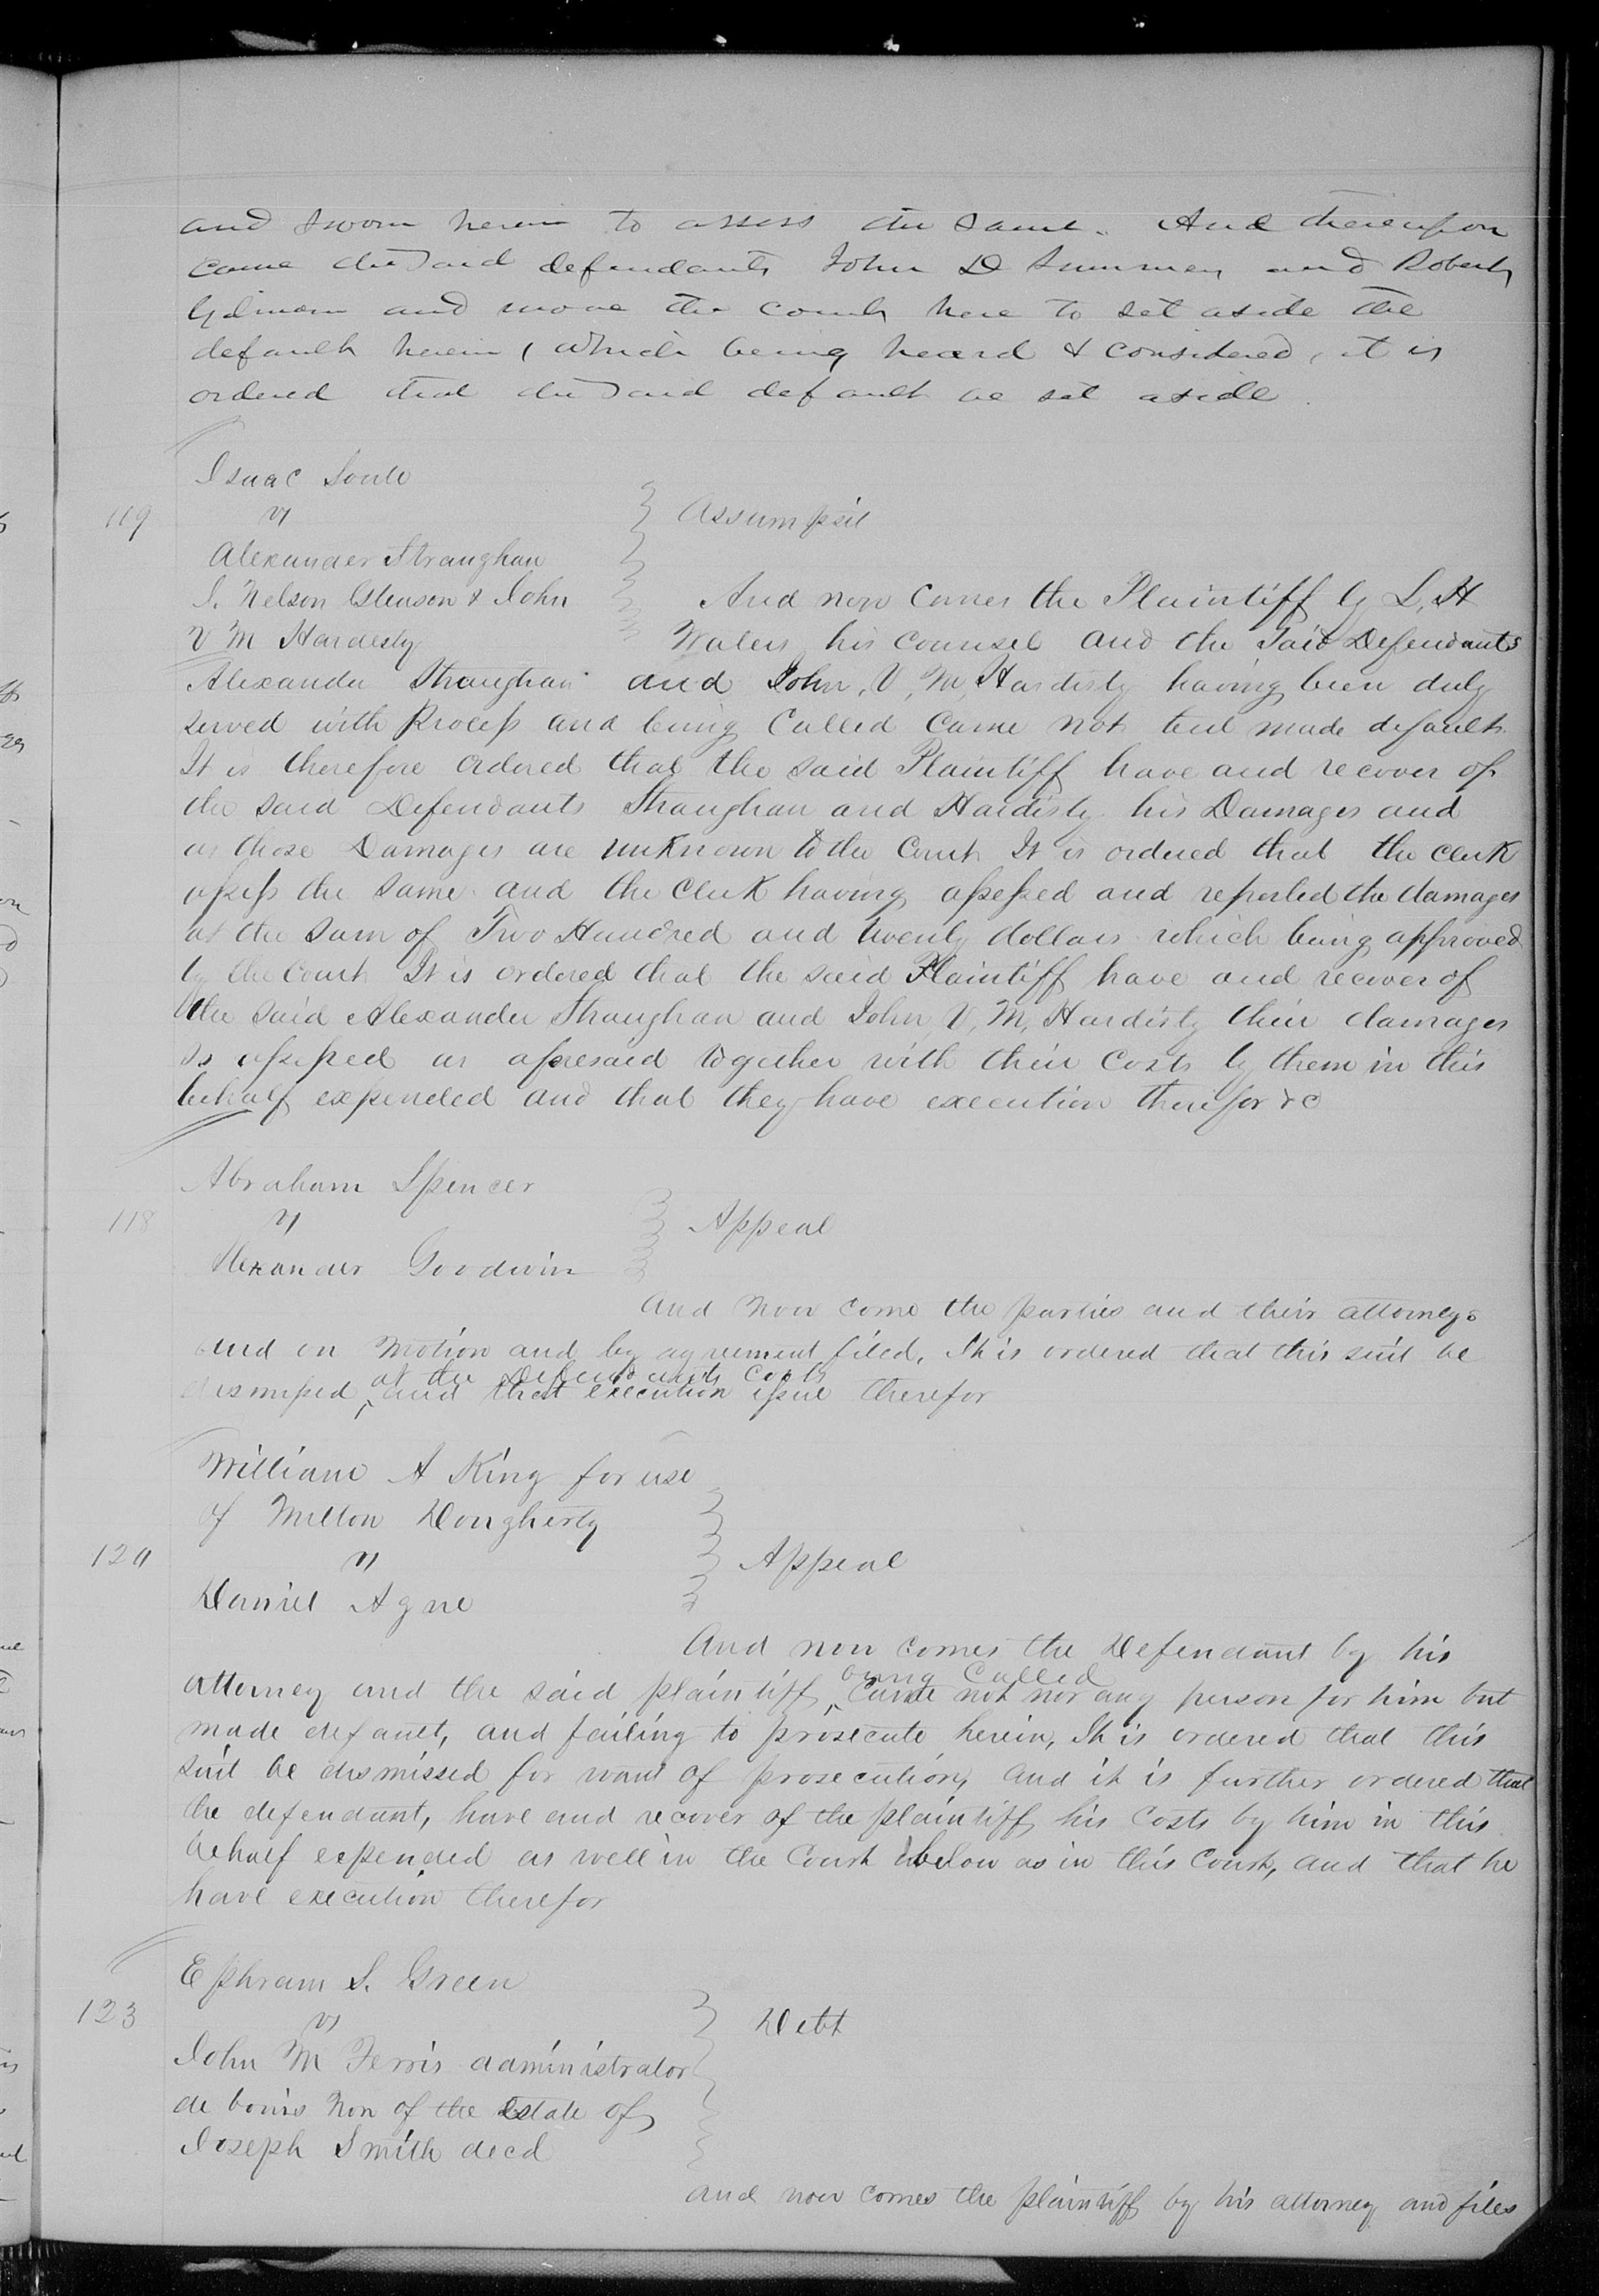 and sworn herein to assess the same. And thereupon
came the said defendants John D and Robert
and move the court here to set aside the
default herein, which being heard & considered, it is
ordered that the said default be set aside.
Isaac Soule
119 vs Assumpsit
Alexander Straughan
J. Nelson Gleason & John And now comes the Plaintiff by L, H
V M Hardesty Waters his counsel and the said Defendants
Alexander Straughan and John, V, M, Hardisty having been duly
served with Process and being Called Came not but made default.
It is therefore ordered that the said Plaintiff have and recover of
the said Defendants Straughan and Hardisty his Damages and
as those Damages are unknown to the Court It is ordered that the clerk
assess the same and the Clerk having assessed and reported the damages
at the sum of Two Hundred and twenty dollars which being approved
by the Court It is ordered that the said Plaintiff have and recover of
the said Alexander Straughan and John, V, M, Hardisty their damages
so assessed as aforesaid together with their Costs by them in this
behalf expended and that they have execution therefor &c
Abraham Spencer
118 vs Appeal
Alexander Goodwin
And now come the parties and their attorneys
and on motion and by agreement filed, It is ordered that this suit be
at the Defendants Costs
dismissed ‸ and that execution issue therefor
William A King for use
of Milton Dougherty
120 vs Appeal
Daniel Agne
And now comes the Defendant by his
being Called
attorney and the said plaintiff ‸ Came not nor any person for him but
made default, and failing to prosecute herein, It is ordered that this
suit be dismissed for want of prosecution, and it is further ordered that
the defendant, have and recover of the plaintiff his Costs by him in this
behalf expended as well in the Court below as in this Court, and that he
have execution therefor
Ephram S. Green
123 vs Debt
John M Ferris administrator
de bonis non of the Estate of
Joseph Smith decd
And now comes the plaintiff by his attorney and files